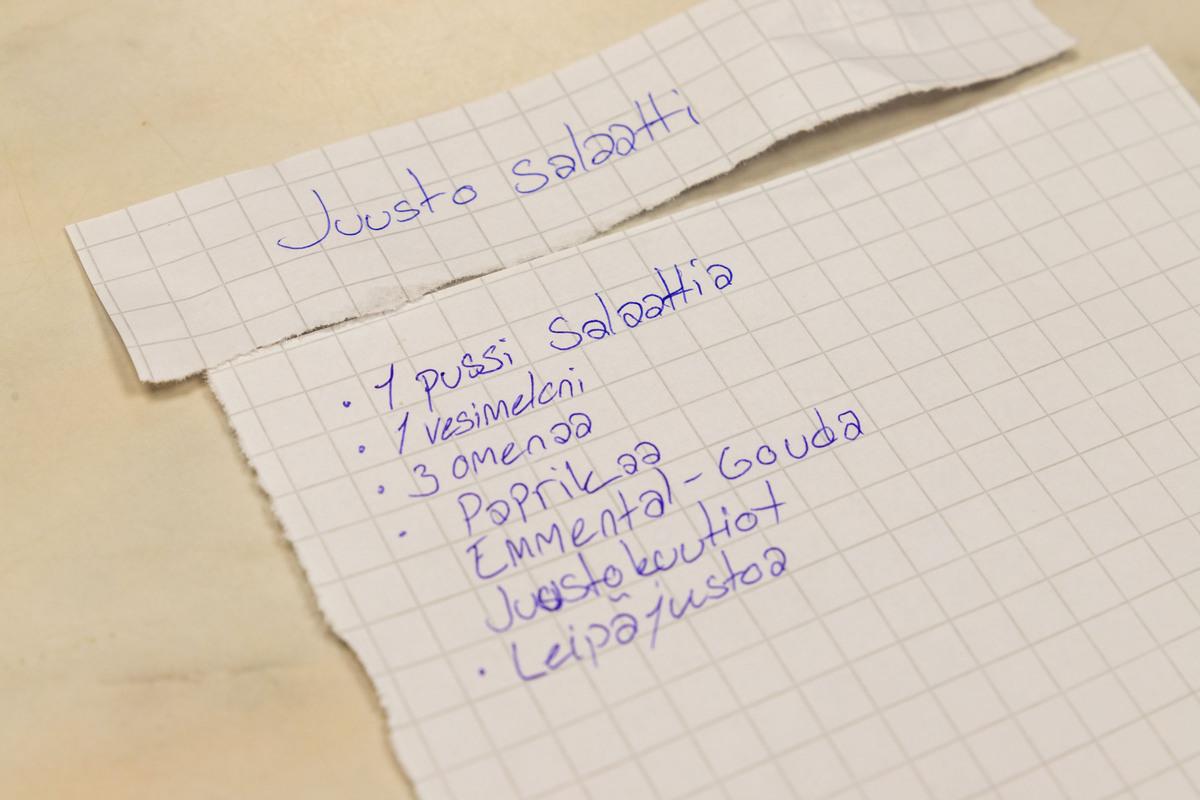 Juusto salaatti
• 1 pussi Salaattia
• 1 vesimeloni
• 3 omenaa
• Paprikaa
Emmental-Gouda
Juustokuutiot
• Leipäjustoa